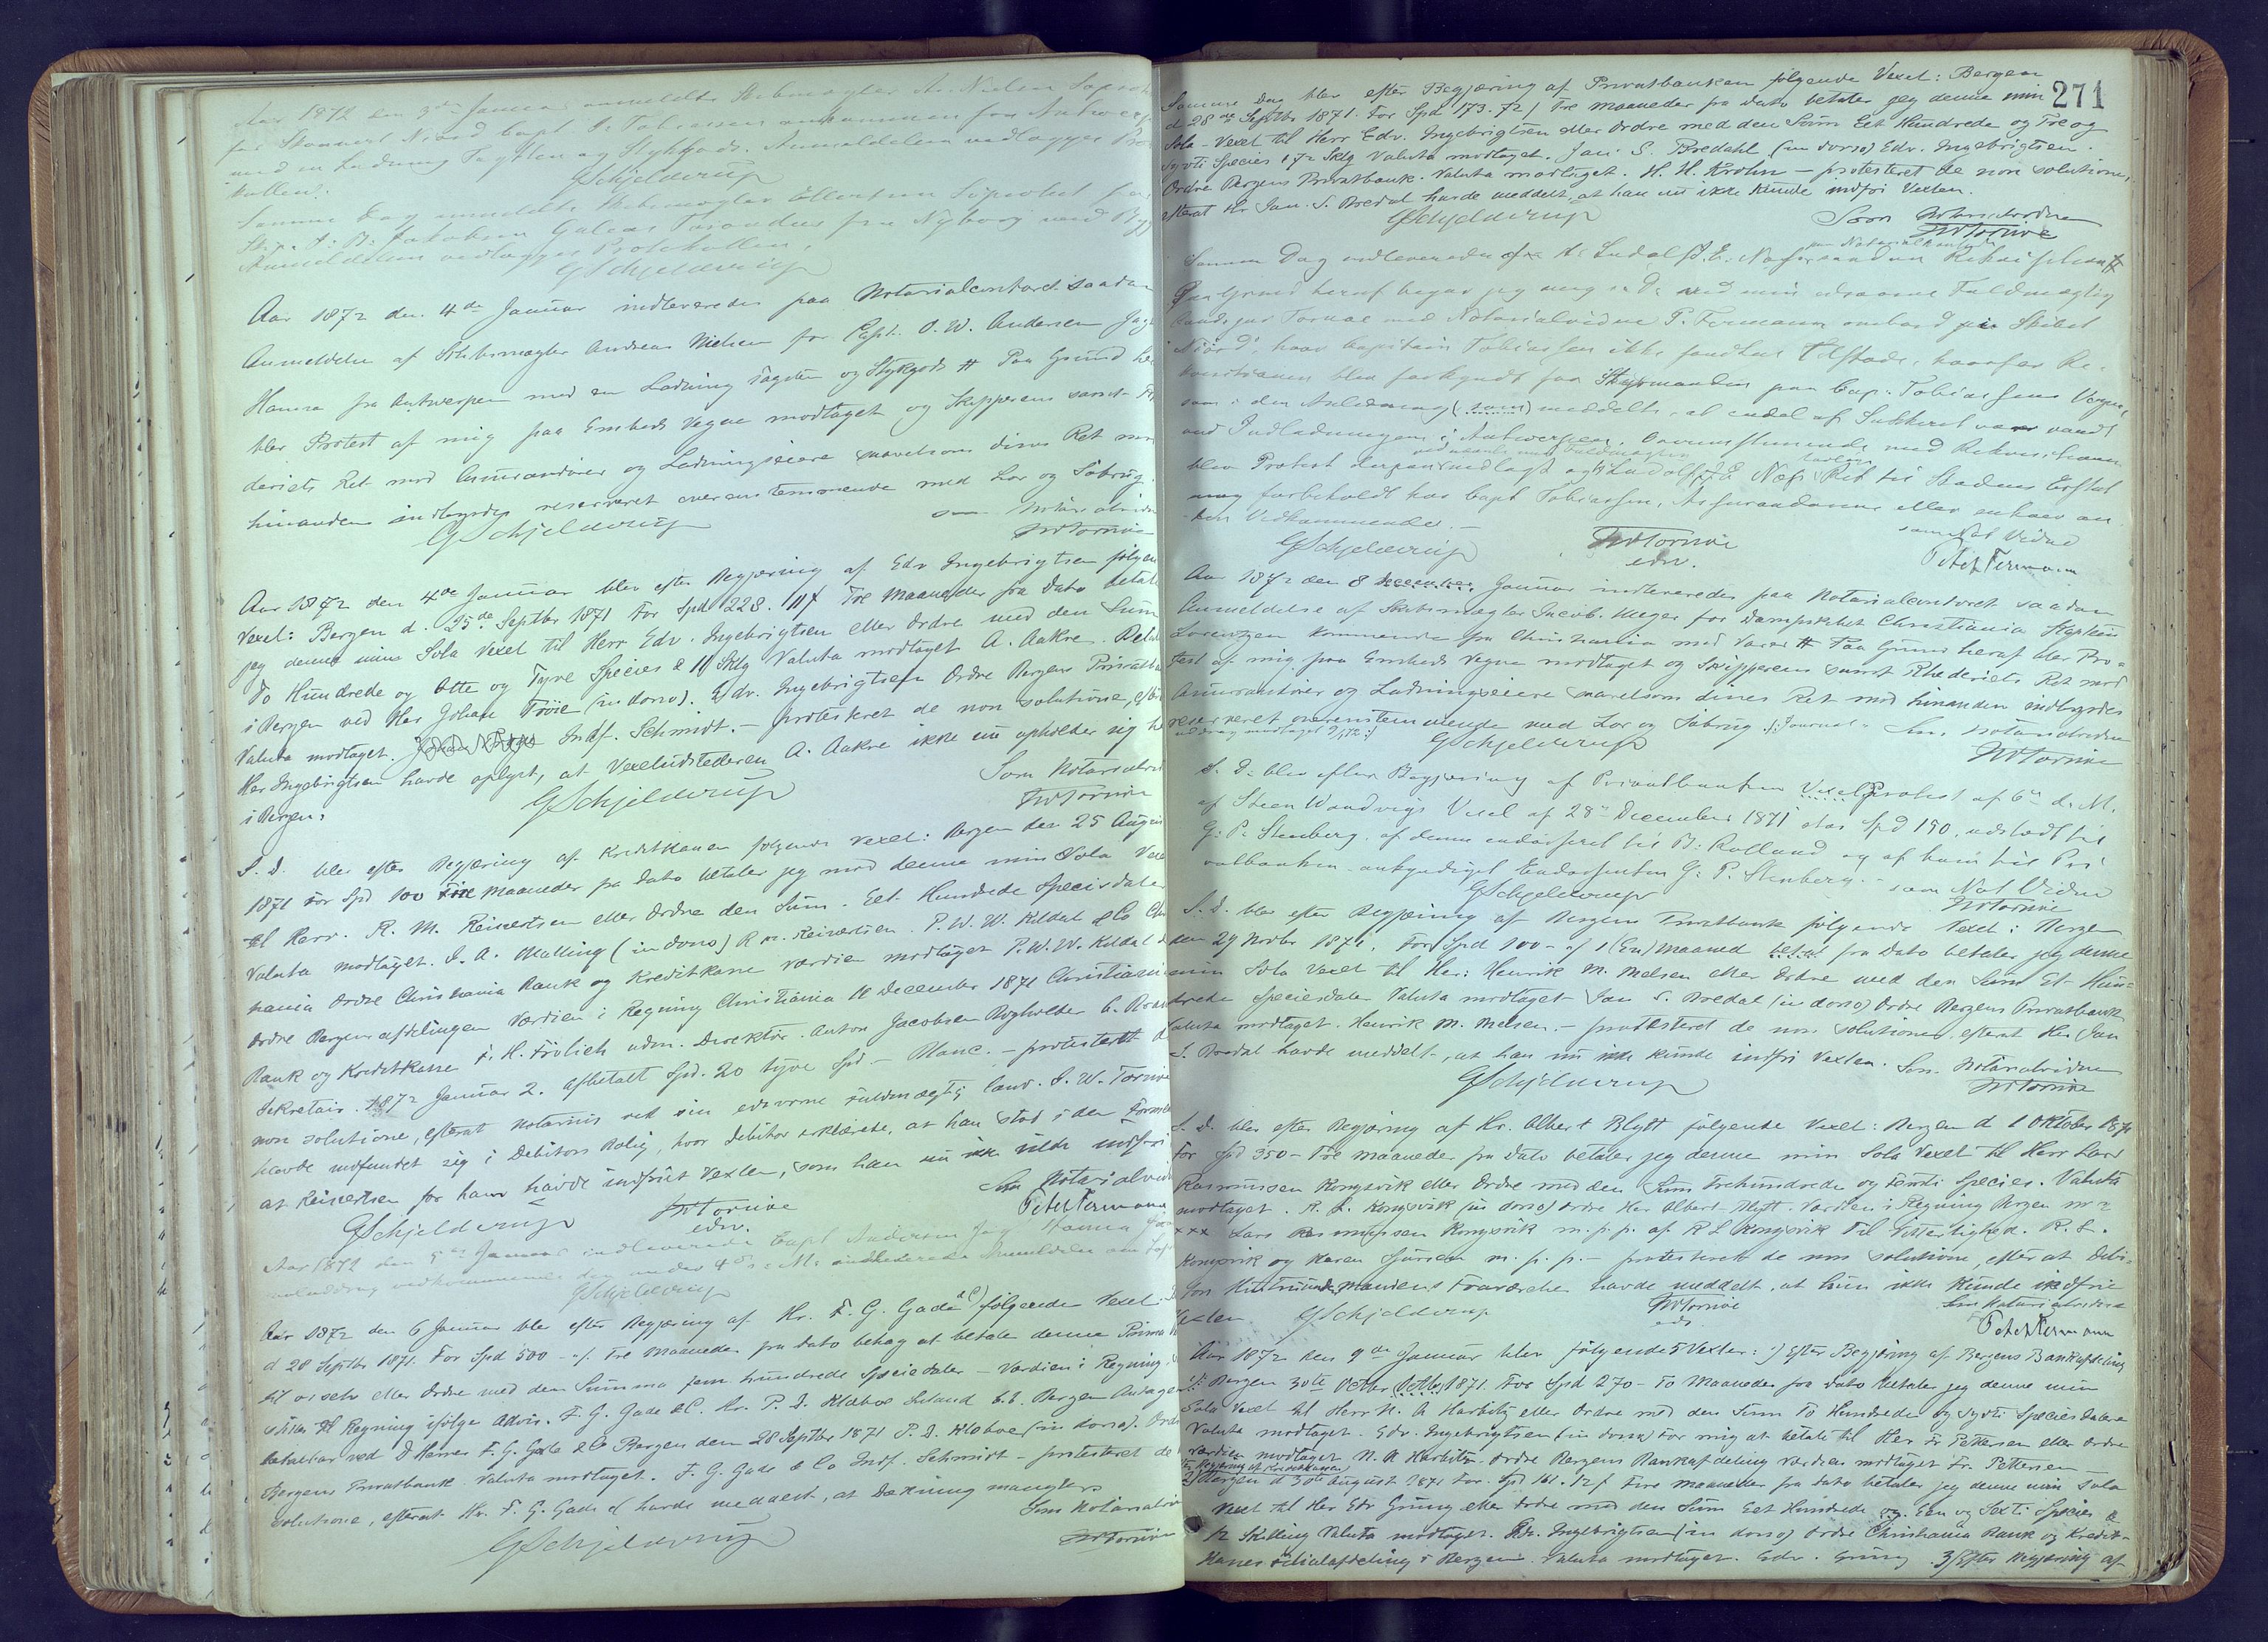 Aar 1872 den 3die Januar anmeldte Skibsmægler A. Nielsen Søprotest
for Skonnert Niord Capt. P. Tobiassen ankommen fra Antwerpen
med en Ladning Tagsten og Stykgods. Anmeldelsen vedlægges Proto
kollen.
GSchjelderup
Samme Dag anmeldte Skibsmægler Ellertsen Søprotest for
Skip. A. B. Jakobsen Galeas fra Nyborg med Byg
Anmeldelsen vedlægges Protokollen.
GSchjelderup
Aar 1872 den 4de Januar indleveredes paa Notarialcontoret saadan
Anmeldelse af Skibsmægler Andreas Nielsen for Capt. O. W. Andersen Jagt
Hanna fra Antwerpen med en Ladning Tagsten og Stykgods # Paa Grund he
blev Protest af mig paa Embeds Vegne modtaget og Skipperens samt R
deriets Ret mod Assurandører og Ladningseiere saavelsom disses Ret mo
hinanden indbyrdes reserveret overensstemmende med Lov og Søbrug.
GSchjelderup
som Notarialvidne
JWTornøe
Aar 1872 den 4de Januar blev efter Begjæring af Edv Ingebrigtsen følgen
Vexel: Bergen d. 25de Septbr 1871 For Spd 228. 11 f Tre Maaneder fra Dato betale
jeg denne min Sola Vexel til Herr Edv. Ingebrigtsen eller Ordre med den Sum
To Hundrede og Otte og Tyve Species & 11 Sklg Valuta modtaget A. Aakre. Betal
i Bergen ved Her Johan Trøie (in dorso). Edv. Ingebrigtsen Ordre Bergens Privatba
Valuta modtaget. Indf. Schmidt. – protesteret de non solutione, efte
Her Ingebrigtsen havde oplyst, at Vexeludstederen A. Aakre ikke nu opholder sig h
i Bergen.
GSchjelderup
Som Notarialvid
JWTornøe
S. D. blev efter Begjæring af Kreditkassen følgende Vexel: Bergen den 25 August
1871 For Spd 100 Fire Maaneder fra Dato betaler jeg mod denne min Sola Vexe
til Herr. R. M. Reinertsen eller Ordre den Sum. Eet Hundrede Speciedaler
Valuta modtaget. J. A. Malling (in dorso) R M. Reinertsen. P. W. W. Kildal & Co Chri
stiania Ordre Christiania Bank og Kreditkasse Værdien modtaget P. W. W. Kildal &
Ordre Bergensafdelingen Værdien i Regning Christiania 11 December 1871 Christiania
Bank og Kreditkasse F. H. Frölich adm. Direktør. Anton Jacobsen
Sekretair. 1872 Januar 2. Afbetalt Spd. 20 tyve Spd – Blanc. – protesteret de
non solutione, efterat Notarius ved sin edsvorne Fuldmægtig Cand. J. W. Tornøe
havde indfundet sig i Debitors Bolig, hvor Debitor erklærede, at han stod i den Formen
at Reinertsen for ham havde indfriet Vexlen, som han nu ikke vilde indfri
GSchjelderup
JWTornøe
edsv.
Som Notarialvid
Peter Fermann
Aar 1872 den 5te Januar indleverede Capt Andersen Jagt Hanna
vedkommende den under 4de d. M. indleverede Anmeldelse om Søp
GSchjelderup
Aar 1872 den 6 Januar blev efter Begjæring af Hr. F. G. Gade & C) følgende Vexel:
d 28 Septbr 1871. For Spd 500 – f. Tre Maaneder fra Dato behag at betale denne Prima
til os selv eller Ordre med den Summa fem hundrede Speciedaler – Værdien i Regning
stilles til Regning ifølge Advis. F. G. Gade & C. Hr. P. D. Klaboe Bergen Antagen
betalbar ved D'Herrer F. G. Gade & Co Bergen den 28 Septbr 1871 P. D. Klaboe (in dorso). Ordre
Bergens Privatbank. Valuta modtaget. F. G. Gade & Co Indf. Schmidt – protesteret de
solutione, efterat Hr. F. G. Gade & C havde meddelt, at Dækning mangler
GSchjelderup
Som Notarialvi
JWTornøe
271
Samme Dag blev efter Begjæring af Privatbanken følgende Vexel: Bergen
d 28de Septbr 1871. For Spd 173. 72 / Tre Maaneder fra Dato betaler jeg denne min
Sola-Vexel til Herr Edv. Ingebrigtsen eller Ordre med den Sum Eet Hundrede og Tre og
Syvti Species & 72 Sklg Valuta modtaget. Jan S. Bredahl (in dorso) Edv. Ingebrigtsen.
Ordre Bergens Privatbank. Valuta modtaget. H. H. Krohn – protesteret de non solutione,
efterat Hr Jan. S. Bredal havde meddelt, at han nu ikke kunde indfri Vexlen.
GSchjelderup
Som Notarialvidne
JWTornøe
paa Notarialkontoret
Samme Dag indleveredes fra A. Ludolf d. E. Næfs saadan Rekvisition #
Paa Grund heraf begav jeg mig S. D. ved min edsvorne Fuldmægtig
Cand. jur Tornøe med Notarialvidne P. Fermann ombord paa Skibet
"Niord", hvor Capitain Tobiassen ikke fandtes tilstede, hvorfor Re-
kvisitionen blev forkyndt for Styrmanden paa Cap. Tobiassens Vegne,
som i den Anledning (som) meddelte, at endel af Sukkeret var vaadt
ved Indladningen i Antwerpen. Overensstemmende med Rekvisitionen
blev Protest derpaa nedlagt og A. Ludolf d. E. Næfs Ret til Skadens Erstat
ning forbeholdt hos Capt Tobiassen, Assurandørerne eller enhver an
den Vedkommende. –
GSchjelderup
JWTornøe
edsv.
som Not Vidne
Peter Fermann
Aar 1872 den 8 December Januar indleveredes paa Notarialcontoret saadan
Anmeldelse af Skibsmægler Jacob Meyer for Dampskibet Christiania Kaptein
Lorentzen kommende fra Christiania med Varer # Paa Grund heraf blev Pro-
test af mig paa Embeds Vegne modtaget og Skipperens samt Rhederiets Ret mod
Assurandører og Ladningseiere saavelsom disses Ret mod hinanden indbyrdes
reserveret overensstemmende med Lov og Søbrug. /: Journal-
udtog modtaget 9/1 72 :/
GSchjelderup
Som Notarialvidne
JWTornøe
S. D. blev efter Begjæring af Privatbanken Vexelprotest af 6te d. M.
af Steen Wandvigs Vexel af 28de December 1871 stor Spd 190, udstedt til
G. P. Stenberg, af denne endosseret til B. Rolland og af ham til Pri
vatbanken ankyndiget Endossenten G. P. Stenberg. –
GSchjelderup
som Not Vidne
JWTornøe
S. D. blev efter Begjæring af Bergens Privatbank følgende Vexel: Bergen
den 29 Novbr 1871. For Spd 100 – f 1 (En) Maaned betal fra Dato betaler jeg denne
min Sola Vexel til Her: Henrik M. Melsen eller Ordre med den Sum Et Hun-
drede Speciesdaler Valuta modtaget Jan S. Bredal (in dorso) Ordre Bergens Privatbank
Valuta modtaget. Henrik M. Melsen. – protesteret de non solutione, efterat Her Jan
S. Bredal havde meddelt, at han nu ikke kunde indfri Vexlen.
GSchjelderup
Som Notarialvidne
JWTornøe
S. D. blev efter Begjæring af Hr. Albert Blytt følgende Vexel: Bergen d 1 Oktober 1871
For Spd 350 – Tre Maaneder fra Dato betaler jeg denne min Sola Vexel til Herr Lars
Rasmussen Kongsvik eller Ordre med den Sum Trehundrede og femti Species. Valuta
modtaget. R. L. Kongsvik (in dorso) Ordre Her Albert Blytt. Værdien i Regning Bergen
xxx Lars Rasmussen Kongsvik m. p. p. af R L Kongsvik Til Vitterlighed. R. L.
Kongsvik og Karen Sjursen m. p. p. – protesteret de non solutione, efter at Debi-
tors Hustru i Mandens Fraværelse havde meddelt, at hun ikke kunde indfrie
Vexlen
GSchjelderup
JWTornøe
eds
Som Notarialvidne
Peter Fermann
Aar 1872 den 9de Januar blev følgende 5 Vexler: 1) Efter Begjæring af Bergens Bankafdeling
Bergen 30te Octbr 1871. For Spd 270 – To Maaneder fra Dato betaler jeg denne min
Sola Vexel til Herr N. A Harbitz eller Ordre med den Sum To Hundrede og Syvti Species Dalere
Valuta modtaget. Edv. Ingebrigtsen (in dorso) For mig at betale til Her Fr Pettersen eller Ordre
Værdien modtaget N. A Harbitz. Ordre Bergens Bankafdeling Værdien modtaget Fr. Pettersen
Efter Begjæring af Kreditkassen
2) Bergen d 30te August 1871 For. Spd 161. 12 f Fire Maaneder fra Dato betaler jeg denne min Sola
Vexel til Her Edv Grüng eller Ordre med den Sum Eet Hundrede og Een og Sexti Species &
12 Skilling Valuta modtaget. Edv. Ingebrigtsen (in dorso) Ordre Christiania Bank og Kredit-
kasses Filialafdeling i Bergen. Valuta modtaget. Edv. Grüng 3/ Efter Begjæring af